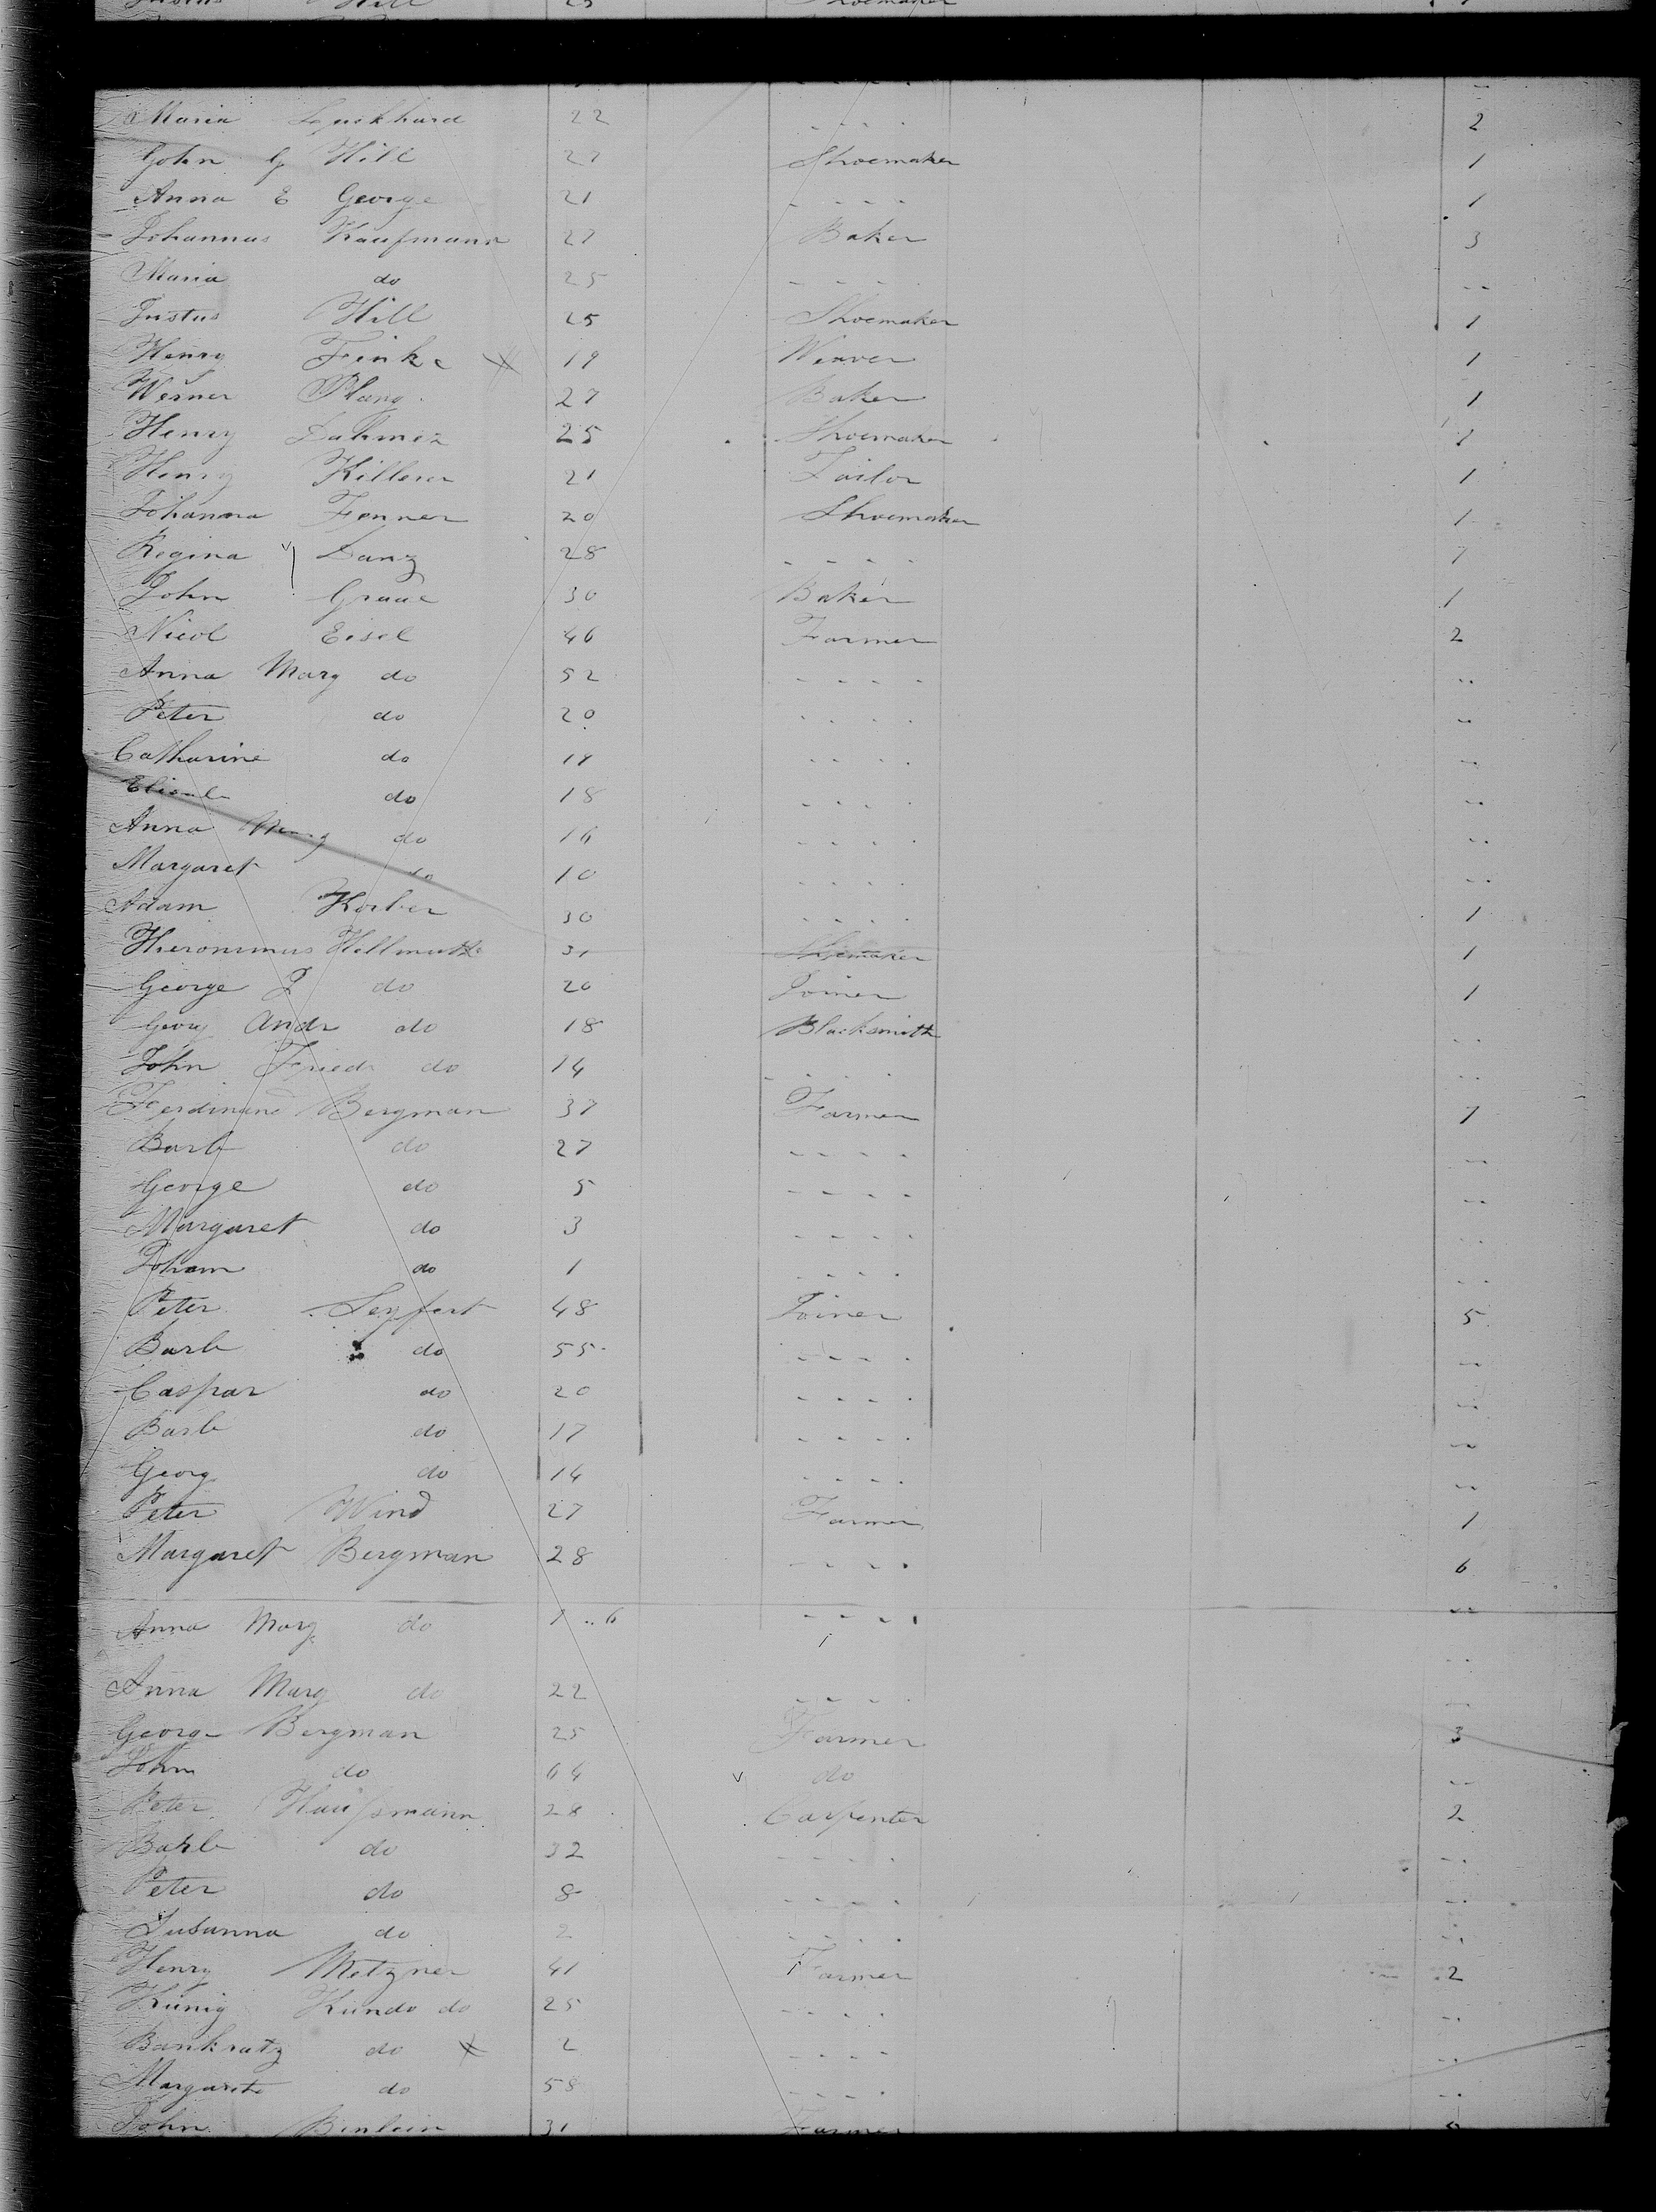 Justus Hill 25 Shoemaker 1
Maria 22 - - - - 2
John G Hill 27 Shoemaker 1
Anna E George 21 - - - - 1
Johannus Kaufmann 27 Baker 3
Maria do 25 - - - - --
Justus Hill 25 Shoemaker 1
Henry Finke 19 Weaver 1
Werner Plang 27 Baker 1
Henry 25 Shoemaker 1
Henry Killerer 21 Tailor 1
Johanna Fenner 20 Shoemaker 1
Regina Danz 28 - - - - 1
John Graue 30 Baker 1
Nicol Eisel 46 Farmer 2
Anna Marg do 52 - - - - --
Peter do 20 - - - - --
Catharine do 19 - - - - --
Elisab do 18 - - - - --
Anna Marg do 16 - - - - --
Margaret do 10 - - - - --
Adam Korber 30 - - - - 1
Hieronimus Hellmuth 31 Shoemaker 1
George J do 20 Joiner 1
Georg Andr do 18 Blacksmith --
John Friedr do 14 - - - - --
Ferdinand Bergman 37 Farmer 1
Barb do 27 - - - - --
George do 5 - - - - --
Margaret do 3 - - - - --
Joham do 1 - - - - --
Peter Seyfert 48 Joiner 5
Barb do 55 - - - - --
Caspar do 20 - - - - --
Barb do 17 - - - - --
Georg do 14 - - - - --
Peter Wind 27 Farmer 1
Margaret Bergman 28 - - - - 6
Anna Marg do 1..6 - - - - --
Anna Marg do 22 - - - - --
George Bergman 25 Farmer 3
John do 64 do --
Peter Haußmann 28 Carpenter 2
Barb do 32 - - - - --
Peter do 8 - - - - --
Susanna do 2 - - - - --
Henry Metzner 41 Farmer 2
Kunig Kundo do 25 - - - - --
Bankratz do 2 - - - - --
Margareta do 58 - - - - --
John 31 Farmer